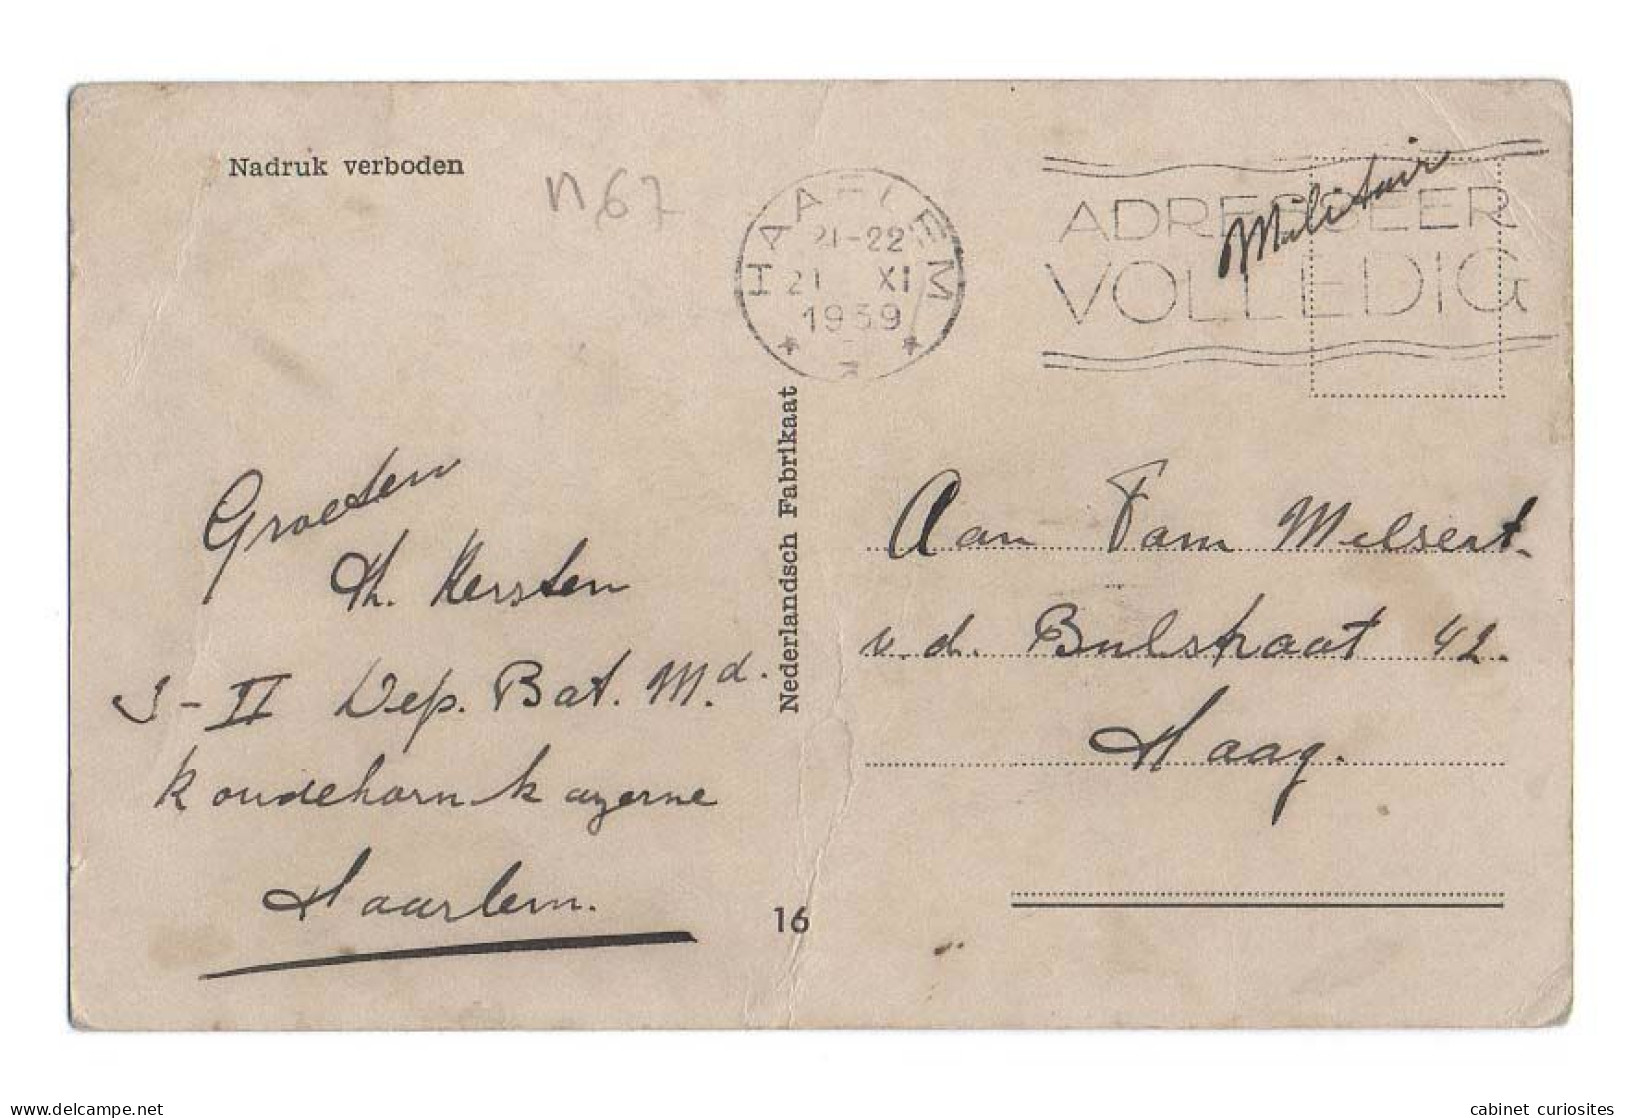 Nadruk verboden
n 67
HAARLEM
21-22
21 XI
1939
ADRESSEER
VOLLEDIG
Militair
Groeten
Th. Kersten
3-II Dep. Bat. Md.
Koudehornkazerne
Haarlem.
Nederlandsch Fabrikaat
16
Aan Fam Melsert.
v.d. Bulstraat 42.
Haag.
www.delcampe.net
cabinet_curiosites